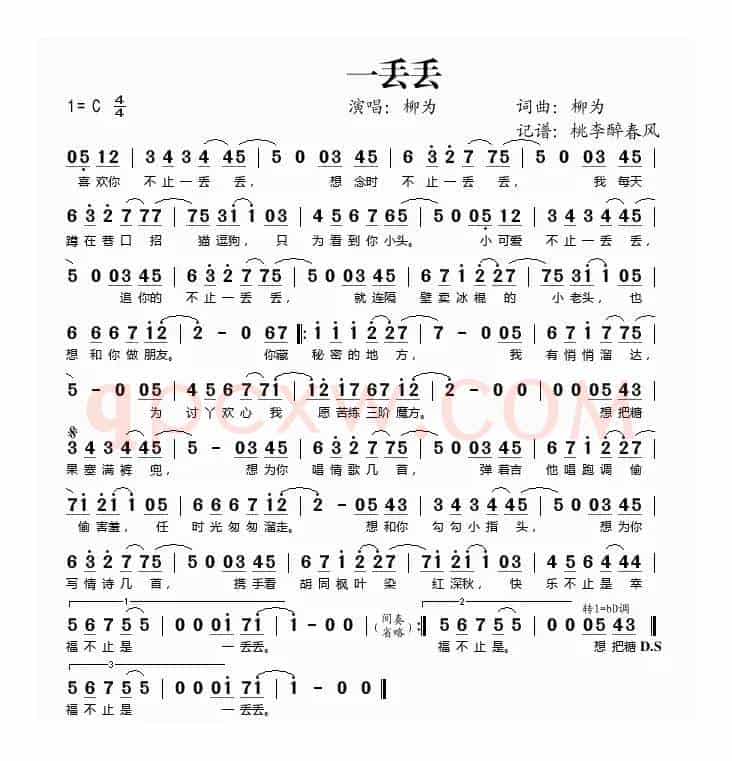 一丢丢
1= C 4/4 演唱：柳为 词曲：柳为
记谱：桃李醉春风
05 12 | 3 4 3 4 45 | 5 0 03 45 | 6 32 7 75 | 5 0 03 45 |
喜欢你 不止一丢丢， 想 念时 不止一丢丢， 我 每天
6 32 7 77 | 75 31 1 03 | 4 5 67 65 | 5 0 05 12 | 3 4 3 4 45 |
蹲在巷口招 猫逗狗，只 为看到你小头。 小可爱 不止一丢丢，
5 0 03 45 | 6 32 7 75 | 5 0 03 45 | 6 71 2 27 | 75 31 1 05 |
追你的 不止一丢丢， 就连隔 壁卖冰棍的 小老头，也
6 6 67 12 | 2 - 0 67 ‖: 1 1 12 27 | 7 - 0 05 | 6 71 7 75 |
想和你做朋友。 你藏 秘密的地方， 我 有悄悄溜达，
5 - 0 05 | 4 5 67 71 | 12 67 67 12 | 2 - 0 0 | 0 0 05 43 |
为 讨丫欢心我 愿苦练三阶魔方。 想把糖
3 4 3 4 45 | 5 - 03 45 | 6 32 7 75 | 5 0 03 45 | 6 71 2 27 |
果塞满裤兜， 想为你 唱情歌几首， 弹着吉 他唱跑调偷
71 21 1 05 | 6 6 67 12 | 2 - 05 43 | 3 4 3 4 45 | 5 0 03 45 |
偷害羞，任 时光匆匆溜走。 想和你 勾勾小指头， 想为你
6 32 7 75 | 5 0 03 45 | 6 71 2 27 | 71 21 1 03 | 4 56 4 44 |
写情诗几首， 携手看 胡同枫叶染 红深秋，快 乐不止是幸
1 2 转1=bD调
5 67 5 5 | 0 0 01 71 | 1 - 0 0 (间奏省略) :‖ 5 67 5 5 | 0 0 05 43 ‖
福不止是 一丢丢。 福不止是。 想把糖 D.S
3
5 67 5 5 | 0 0 01 71 | 1 - 0 0 ‖
福不止是 一丢丢。
qpcxw.COM